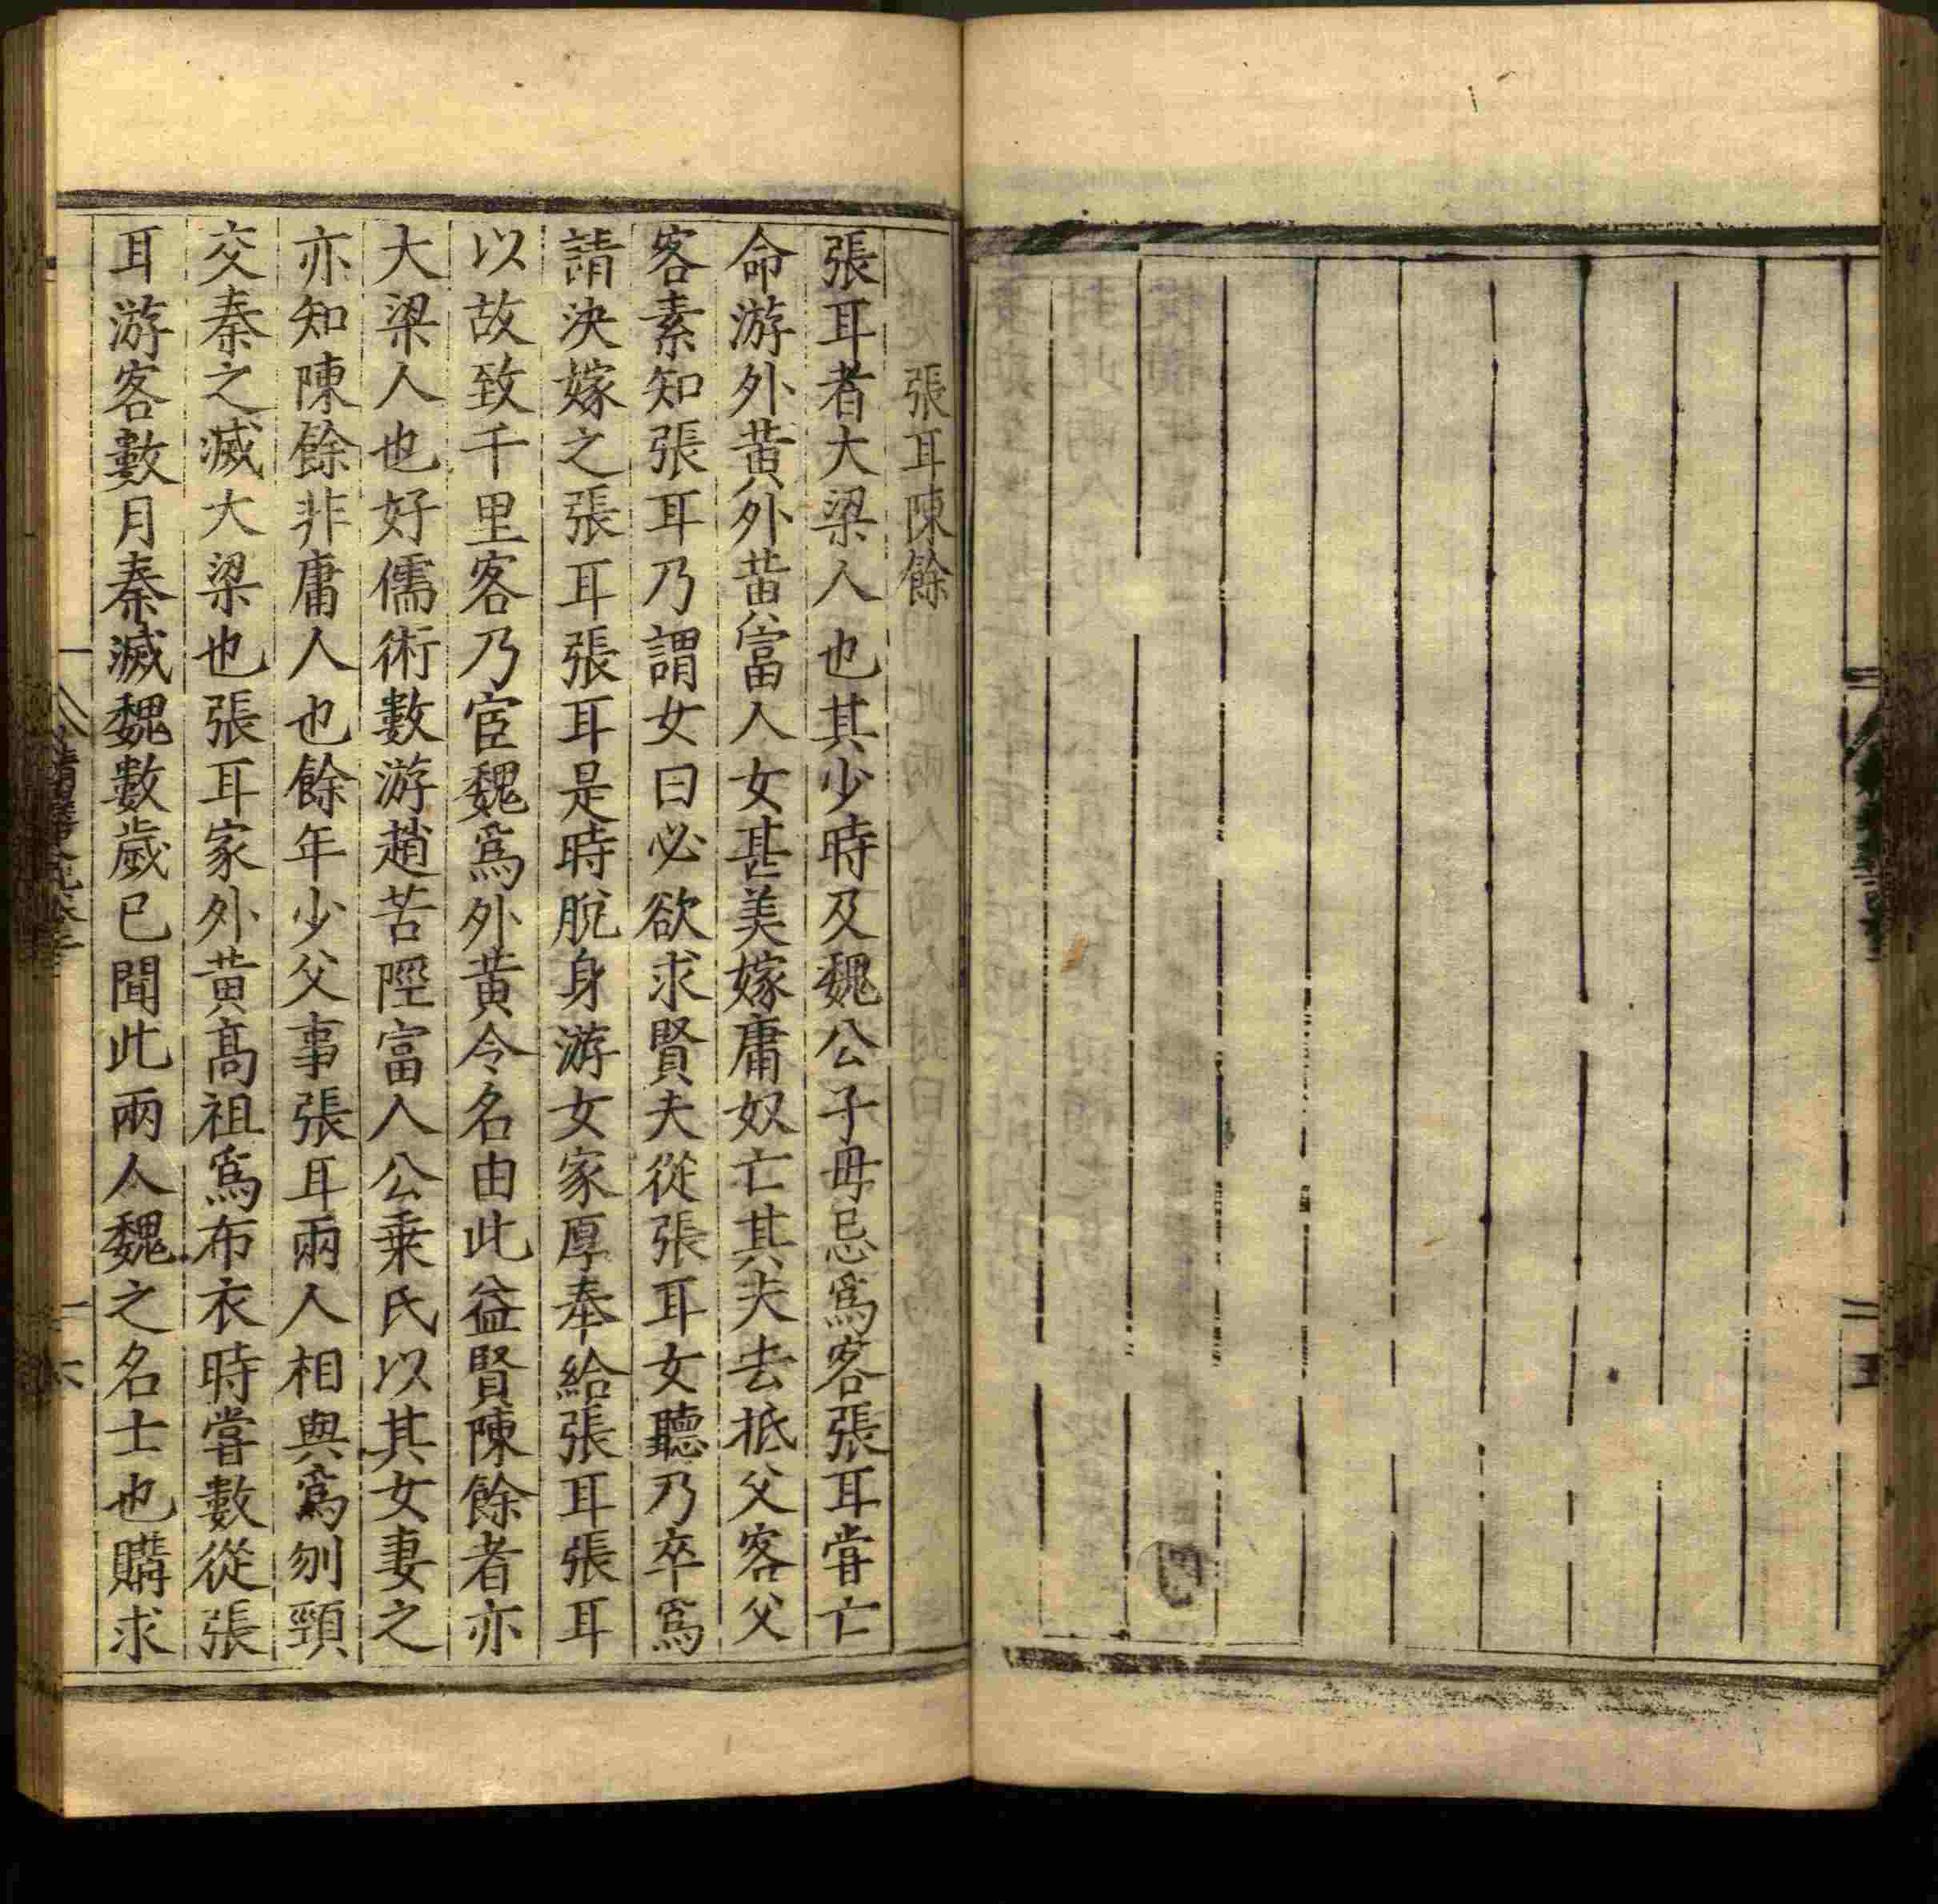 張耳陳餘
張耳者大梁人也其少時及魏公子毋忌爲客張耳嘗亡
命游外黃外黃富人女甚美嫁庸奴亡其夫去抵父客父
客素知張耳乃謂女曰必欲求賢夫從張耳女聽乃卒爲
請決嫁之張耳張耳是時脫身游女家厚奉給張耳張耳
以故致千里客乃宦魏爲外黃令名由此益賢陳餘者亦
大梁人也好儒術數游趙苦陘富人公乗氏以其女妻之
亦知陳餘非庸人也餘年少父事張耳兩人相與爲刎頸
交秦之滅大梁也張耳家外黃高祖爲布衣時嘗數從張
耳游客數月秦滅魏數歲已聞此兩人魏之名士也購求
六